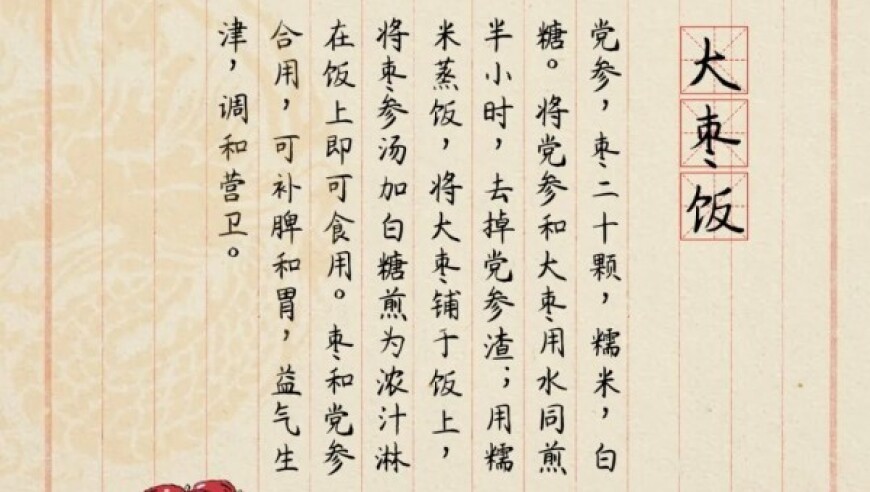 大枣饭
党参，枣二十颗，糯米，白
糖。将党参和大枣用水同煎
半小时，去掉党参渣；用糯
米蒸饭，将大枣铺于饭上，
将枣参汤加白糖煎为浓汁淋
在饭上即可食用。枣和党参
合用，可补脾和胃，益气生
津，调和营卫。